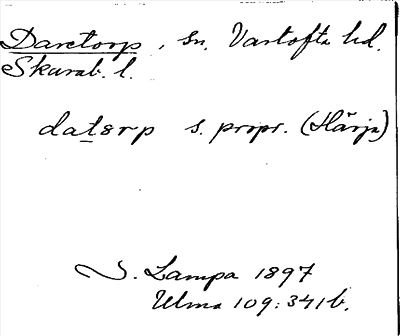 Daretorp, sn. Vartofta hd.
Skarab. l.
datsrp s. propr. (Härja)
S. Lampa 1897
Ulma 109:341b.